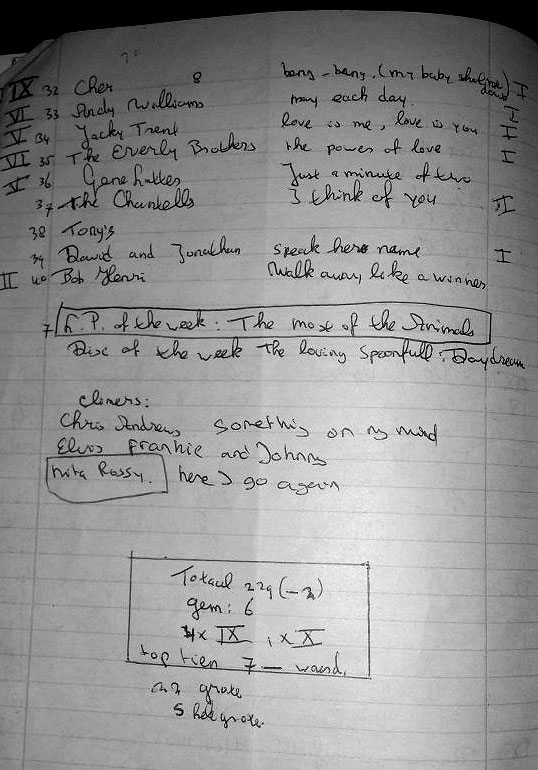 8
IX 32 Cher bang-bang (my baby shot me down) I
VI 33 Andy Williams may each day. I
V 34 Jacky Trent love is me, love is you I
VII 35 The Everly Brothers the power of love I
V 36 Gene Just a minute of two
37 The Chantells I think of you II
38 Tony's
39 David and Jonathan speak here name I
II 40 Bob Henri Walk away like a winner
7 L.P. of the week: The most of the Animals
Disc of the week The loving Spoonfull: Daydream
climers:
Chris Andrews something on my mind
Elvis Frankie and Johnny
nita Rossy. here I go again
Totaal 229 (-2)
gem: 6
4x IX, 1 x X
top tien 7 — waard.
grote
5 hele grote.